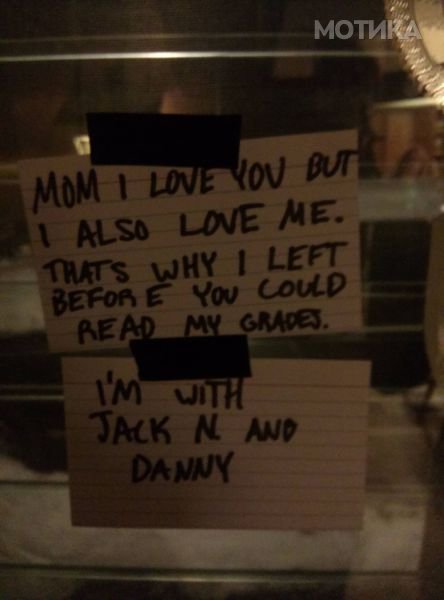 МОТИКА
MOM I LOVE YOU BUT
I ALSO LOVE ME.
THATS WHY I LEFT
BEFORE YOU COULD
READ MY GRADES.
I'M WITH
JACK N AND
DANNY